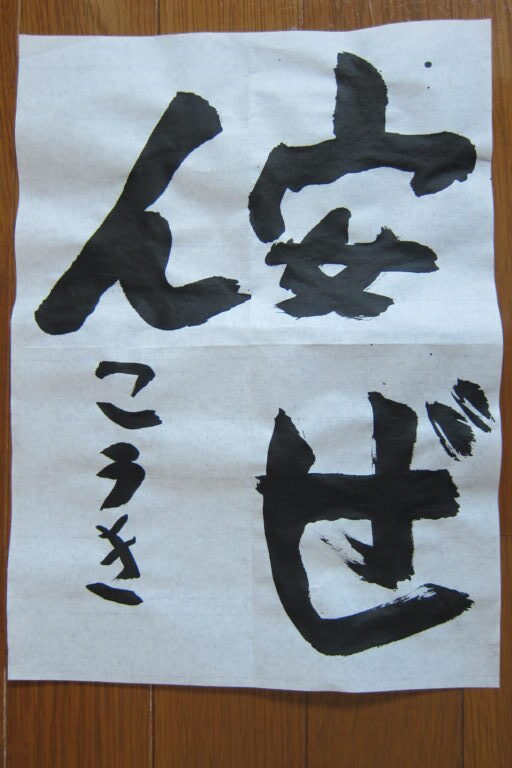 安ぜ
ん こうき